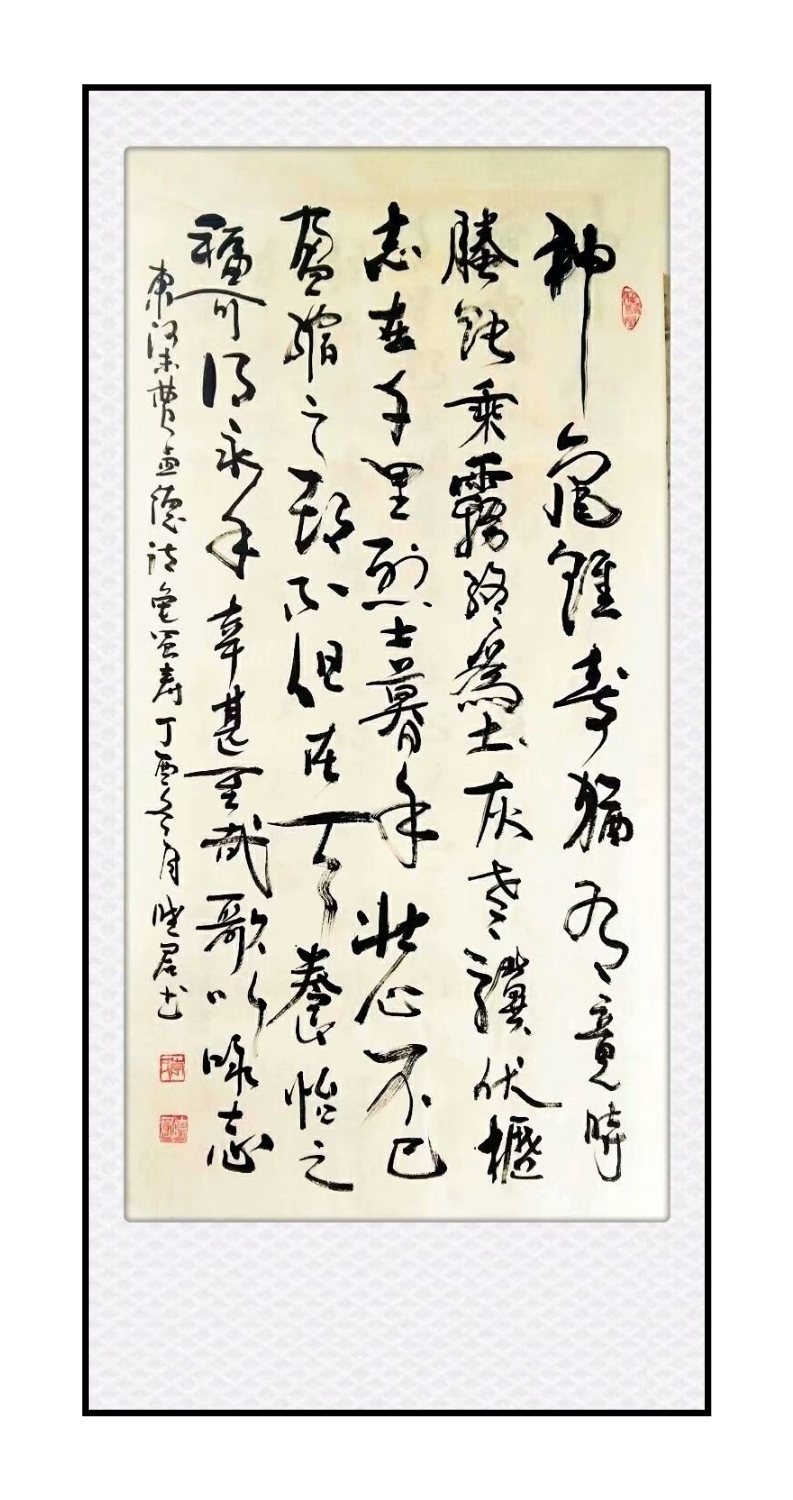 神龜雖壽猶有竟時
螣蛇乘霧終爲土灰老驥伏櫪
志在千里烈士暮年壯心不已
盈縮之期不但在天養怡之
福可得永年幸甚至哉歌以咏志
東漢末曹孟德詩龜雖壽丁酉冬月书